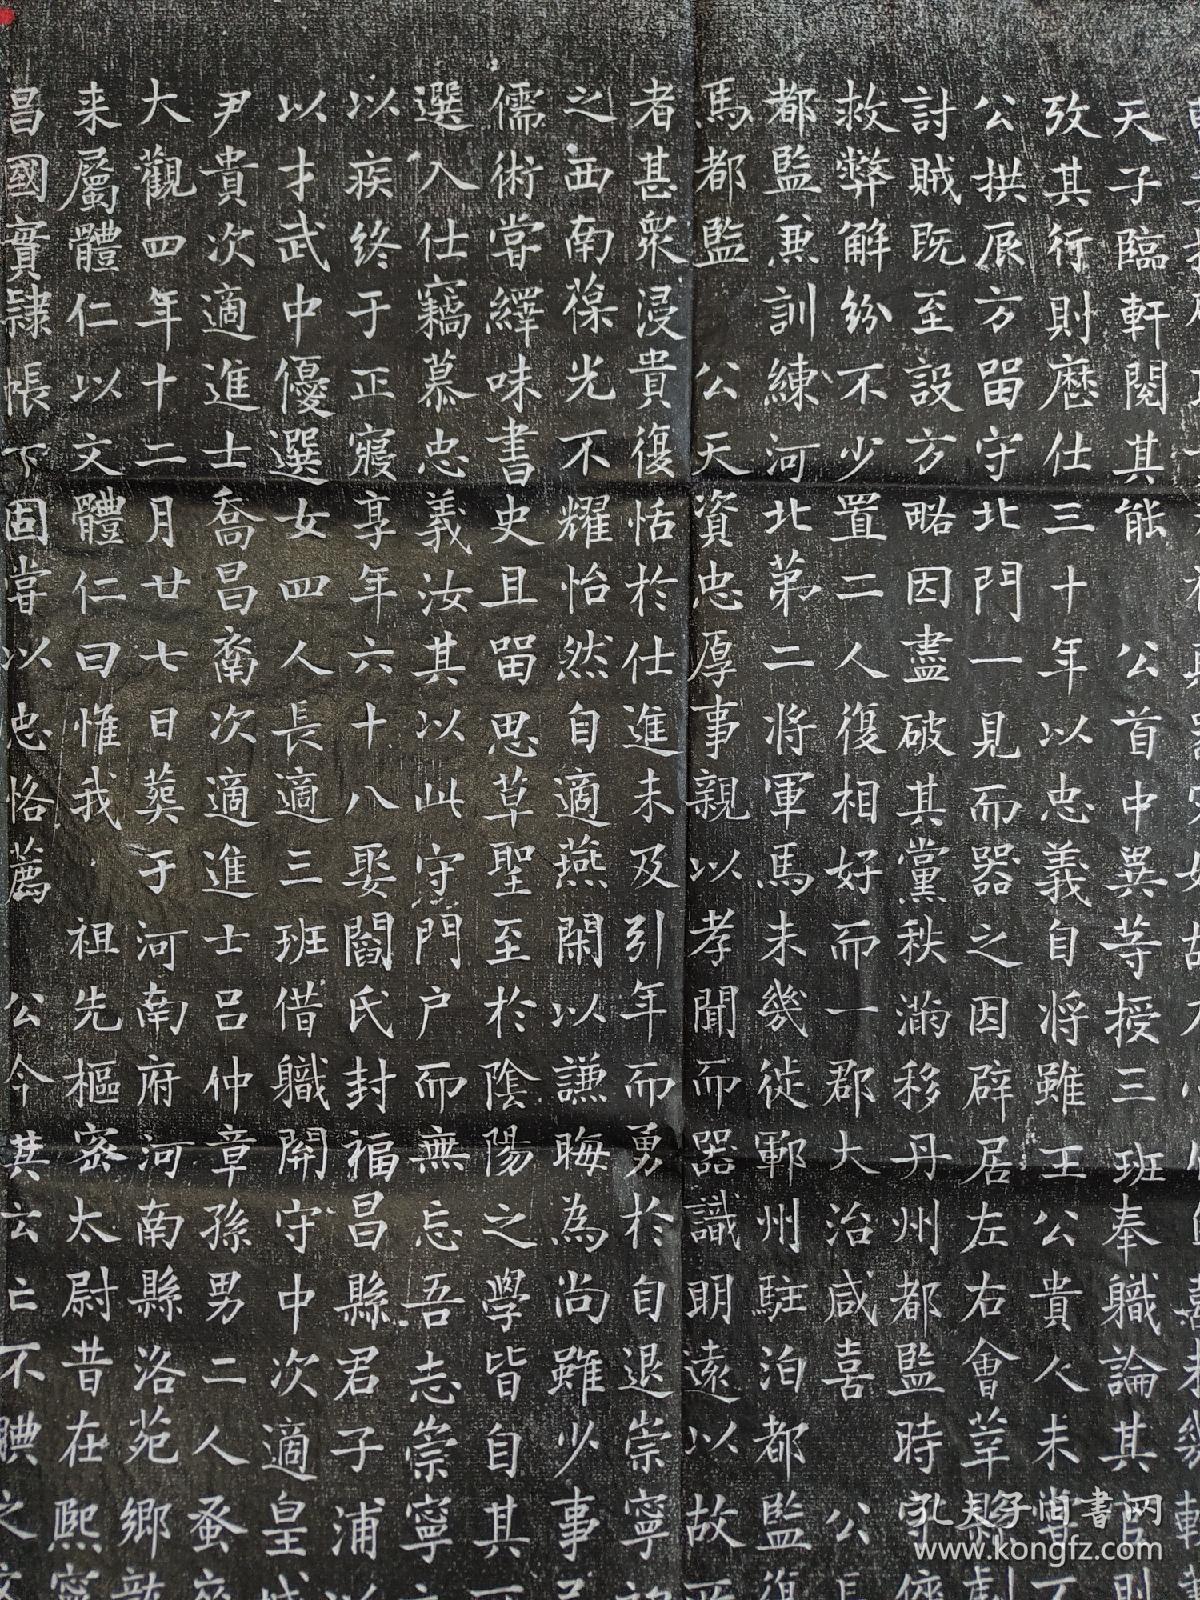 天子臨軒閱其能 公首中異等授三班奉職論其
攷其行則歷仕三十年以忠義自將雖王公貴人未嘗不
公拱辰方留守北門一見而器之因辟居左右會莘縣劇
討賊既至設方略因盡破其黨秩滿移丹州都監時
救弊解紛不少置二人復相好而一郡大治咸喜 公
都監兼訓練河北第二將軍馬未幾徙鄆州駐泊都監復
馬都監 公天資忠厚事親以孝聞而器識明遠以故
者甚衆浸貴復恬於仕進未及引年而勇於自退崇寧
之西南葆光不耀怡然自適燕閑以謙晦為尚雖少事
儒術嘗繹味書史且留思草聖至於陰陽之學皆自其
選入仕竊慕忠義汝其以此守門户而無忘吾志崇寧
以疾終于正寢享年六十八娶閻氏封福昌縣君子浦
以才武中優選女四人長適三班借職開守中次適皇城
尹貴次適進士喬昌裔次適進士呂仲章孫男二人蚤卒
大觀四年十二月廿七日葬于河南府河南縣洛苑鄉
来屬體仁以文體仁曰惟我 祖先樞密太尉昔在熙寧
昌國實隷帳下固嘗以忠恪薦 公今其云亡不腆之文
孔夫子旧書网
www.kongfz.com